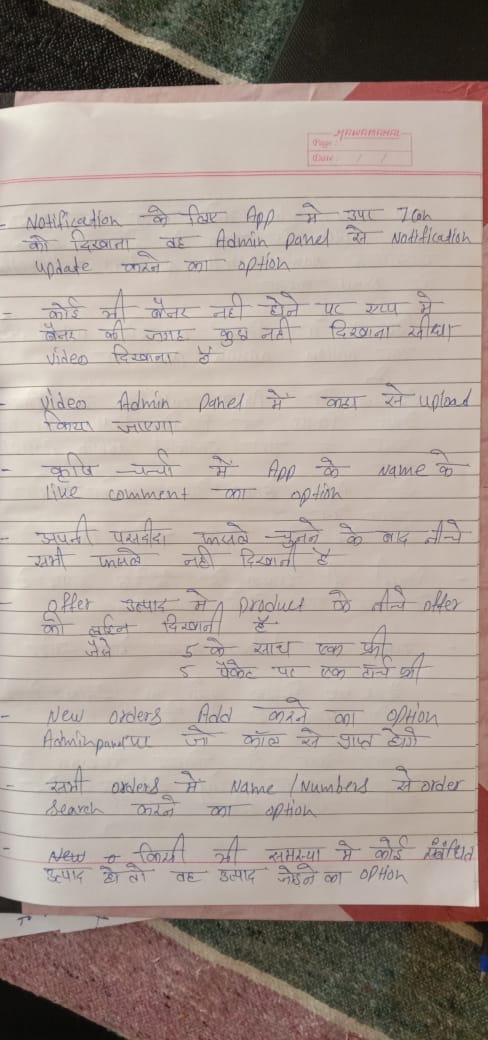 MAWAMAHAL
Page :
Date : / /
- Notification के लिए App मे उपर Icon
को दिखाना वह Admin panel से Notification
update करने का option
- कोई भी बैनर नही होने पर एप मे
बैनर की जगह कुछ नही दिखाना सीधा
Video दिखाना है
- Video Admin panel में कहा से upload
किया जाएगा
- कृषि चर्चा में App के Name के
like comment का option
- अपनी पसंदीदा फसले चुनने के बाद नीचे
सभी फसले नही दिखानी है
- offer उत्पाद मे product के नीचे offer
की लाईन दिखानी है
जैसे 5 के साथ एक फ्री
5 पैकेट पर एक टार्च फ्री
- New orders Add करने का option
Adminpanel पर जो कॉल से प्राप्त होंगे
- सभी orders में Name / Numbers से order
Search करने का option
- New किसी भी समस्या मे कोई संबंधित
उत्पाद हो तो वह उत्पाद जोडने का option